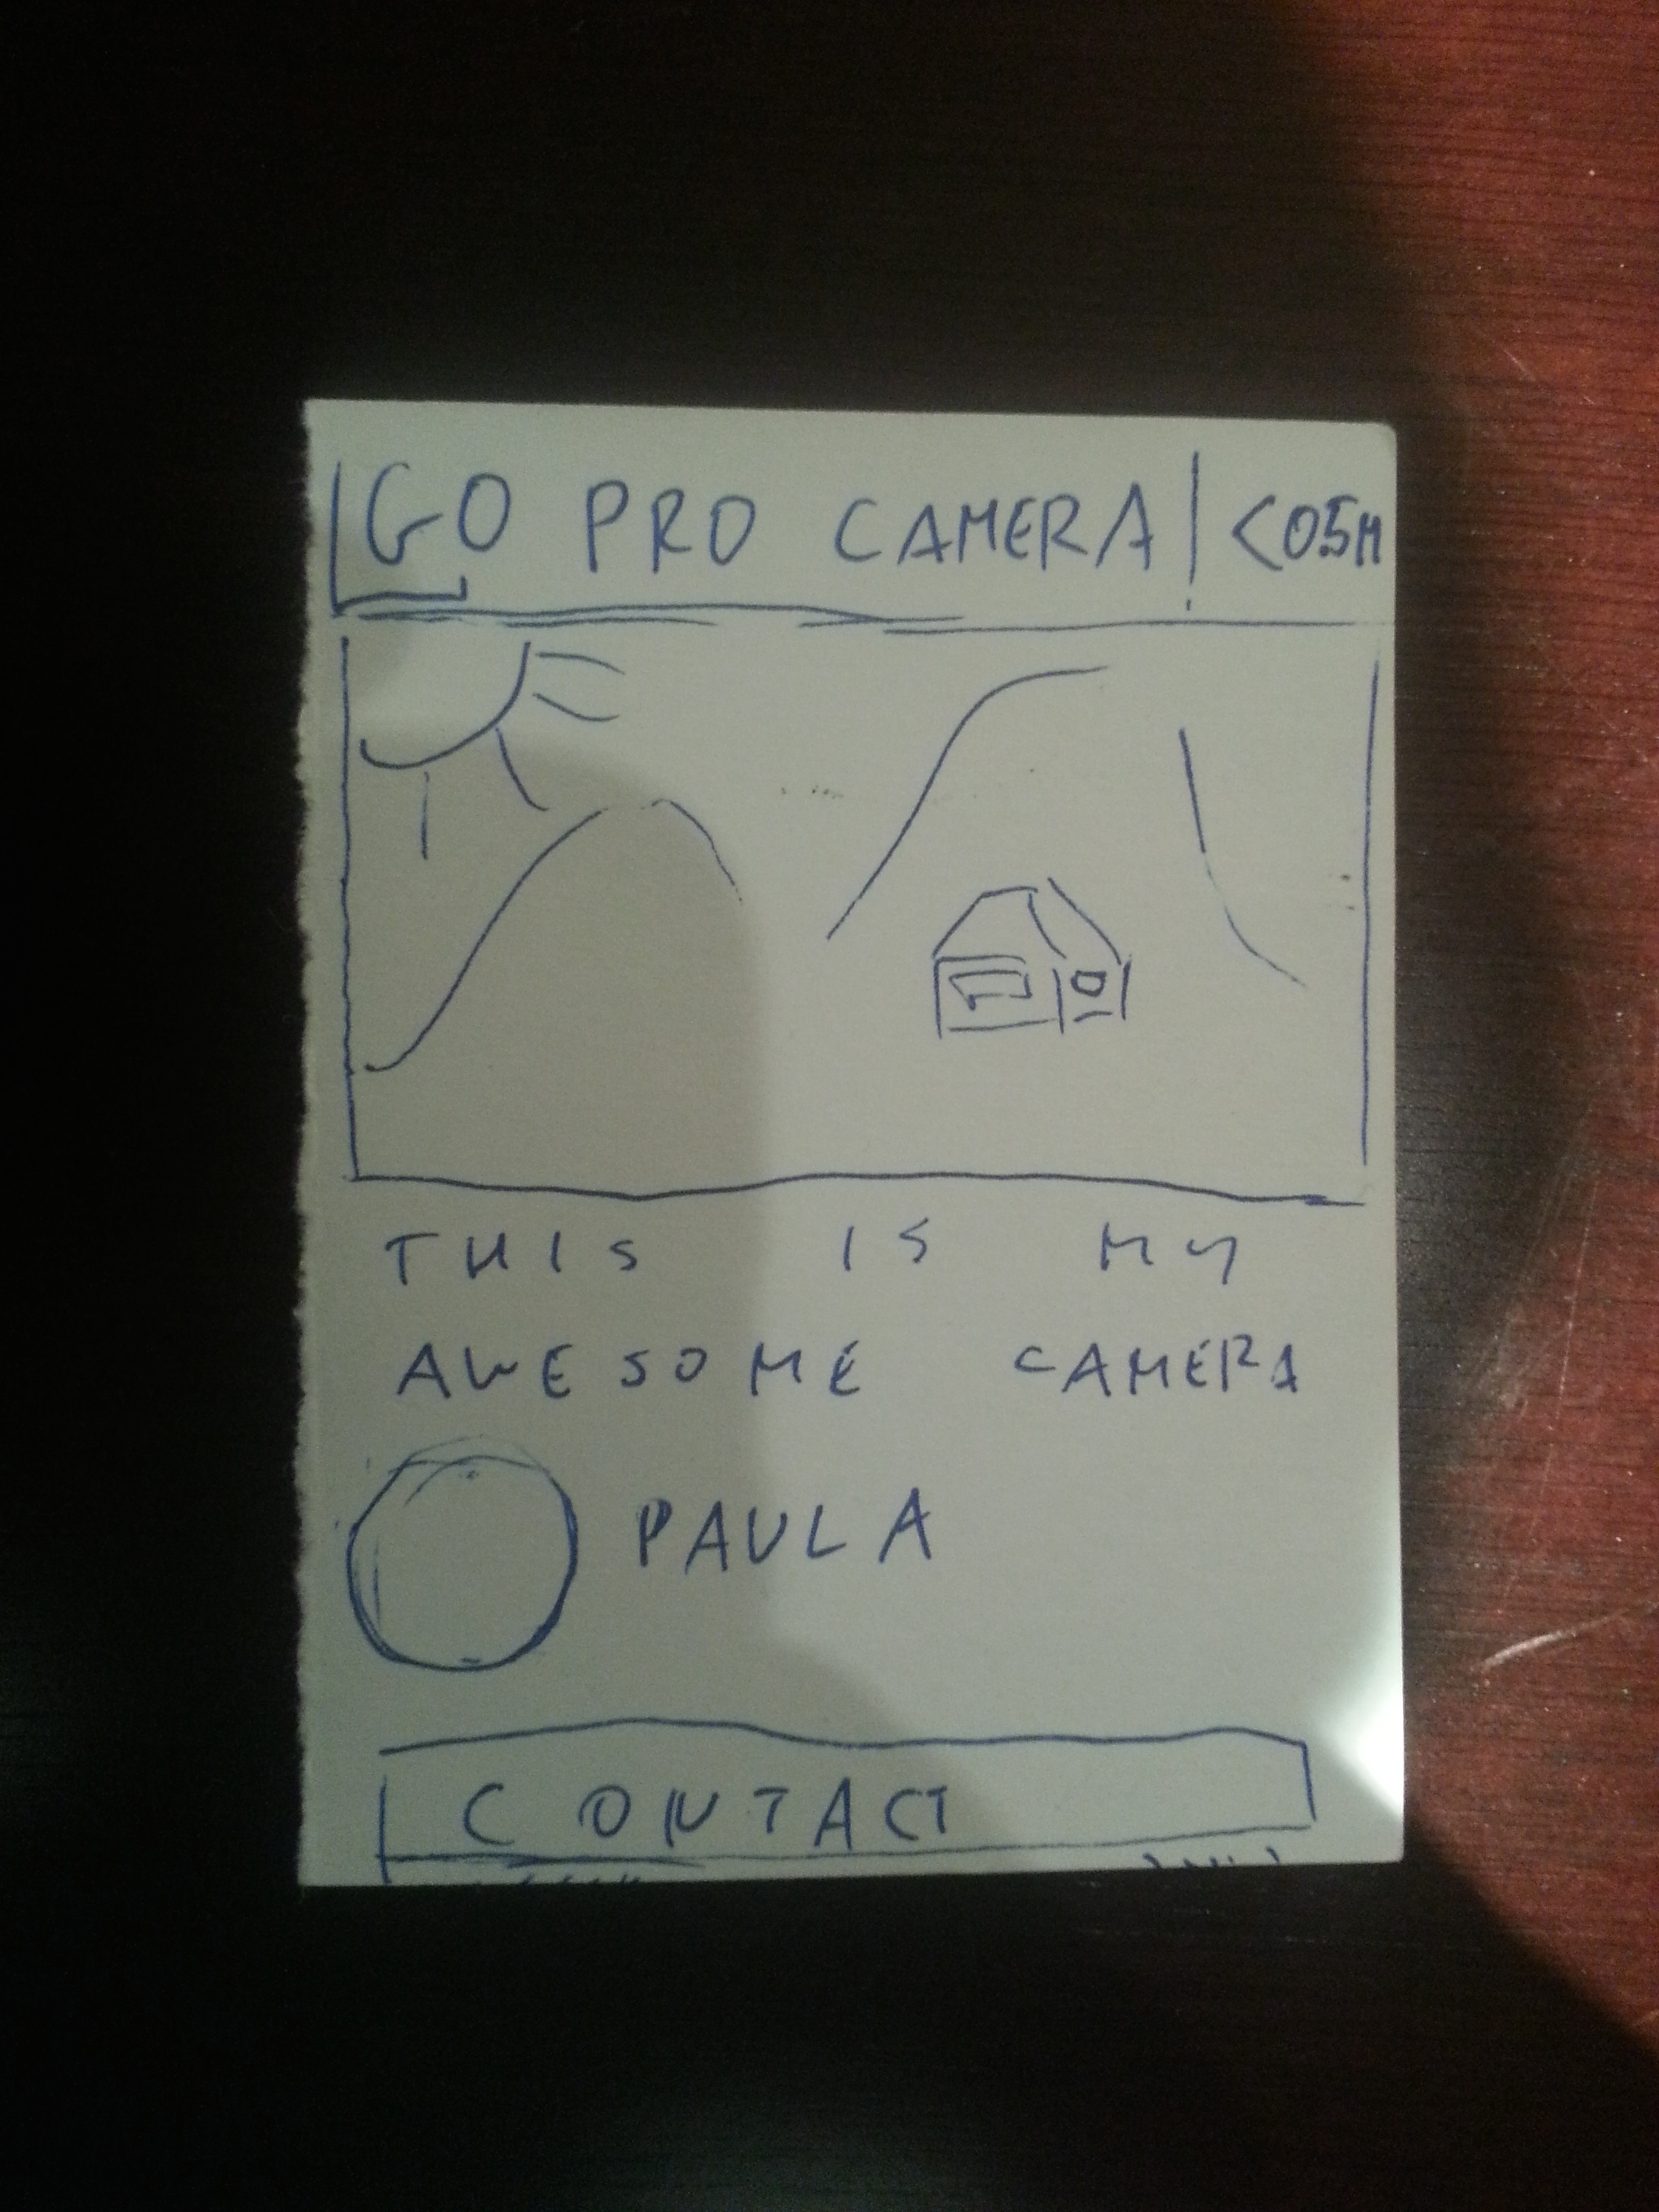 GO PRO CAMERA <0.5M
THIS IS MY
AWESOME CAMERA
PAULA
CONTACT